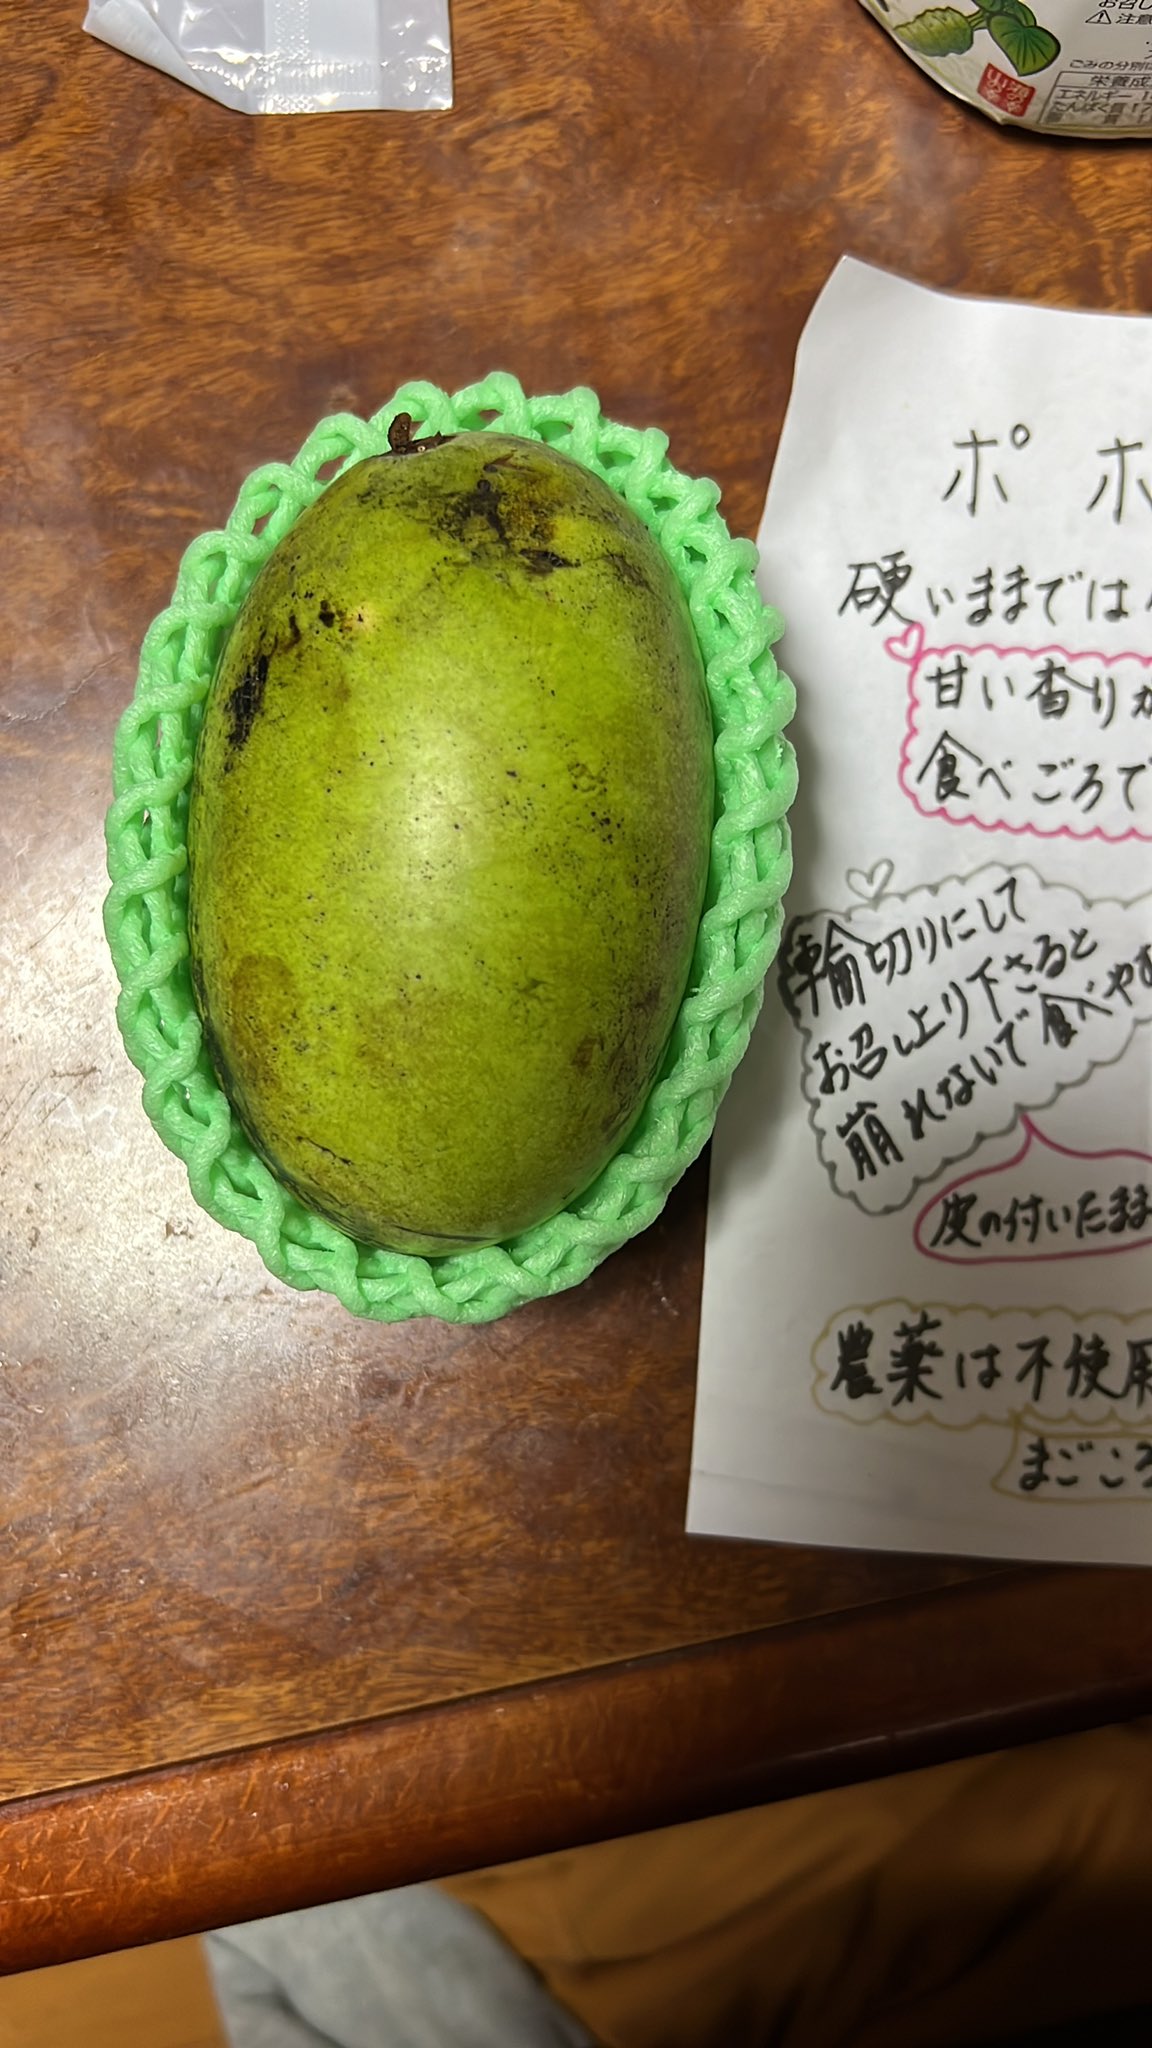 お召し
⚠注意
ごみの分別に
栄養成
エネルギー
たんぱく質
ポ ホ
硬いままでは
甘い香りが
食べごろで
輪切りにして
お召し上り下さると
崩れないで食べやす
皮の付いたまま
農薬は不使用
まごころ